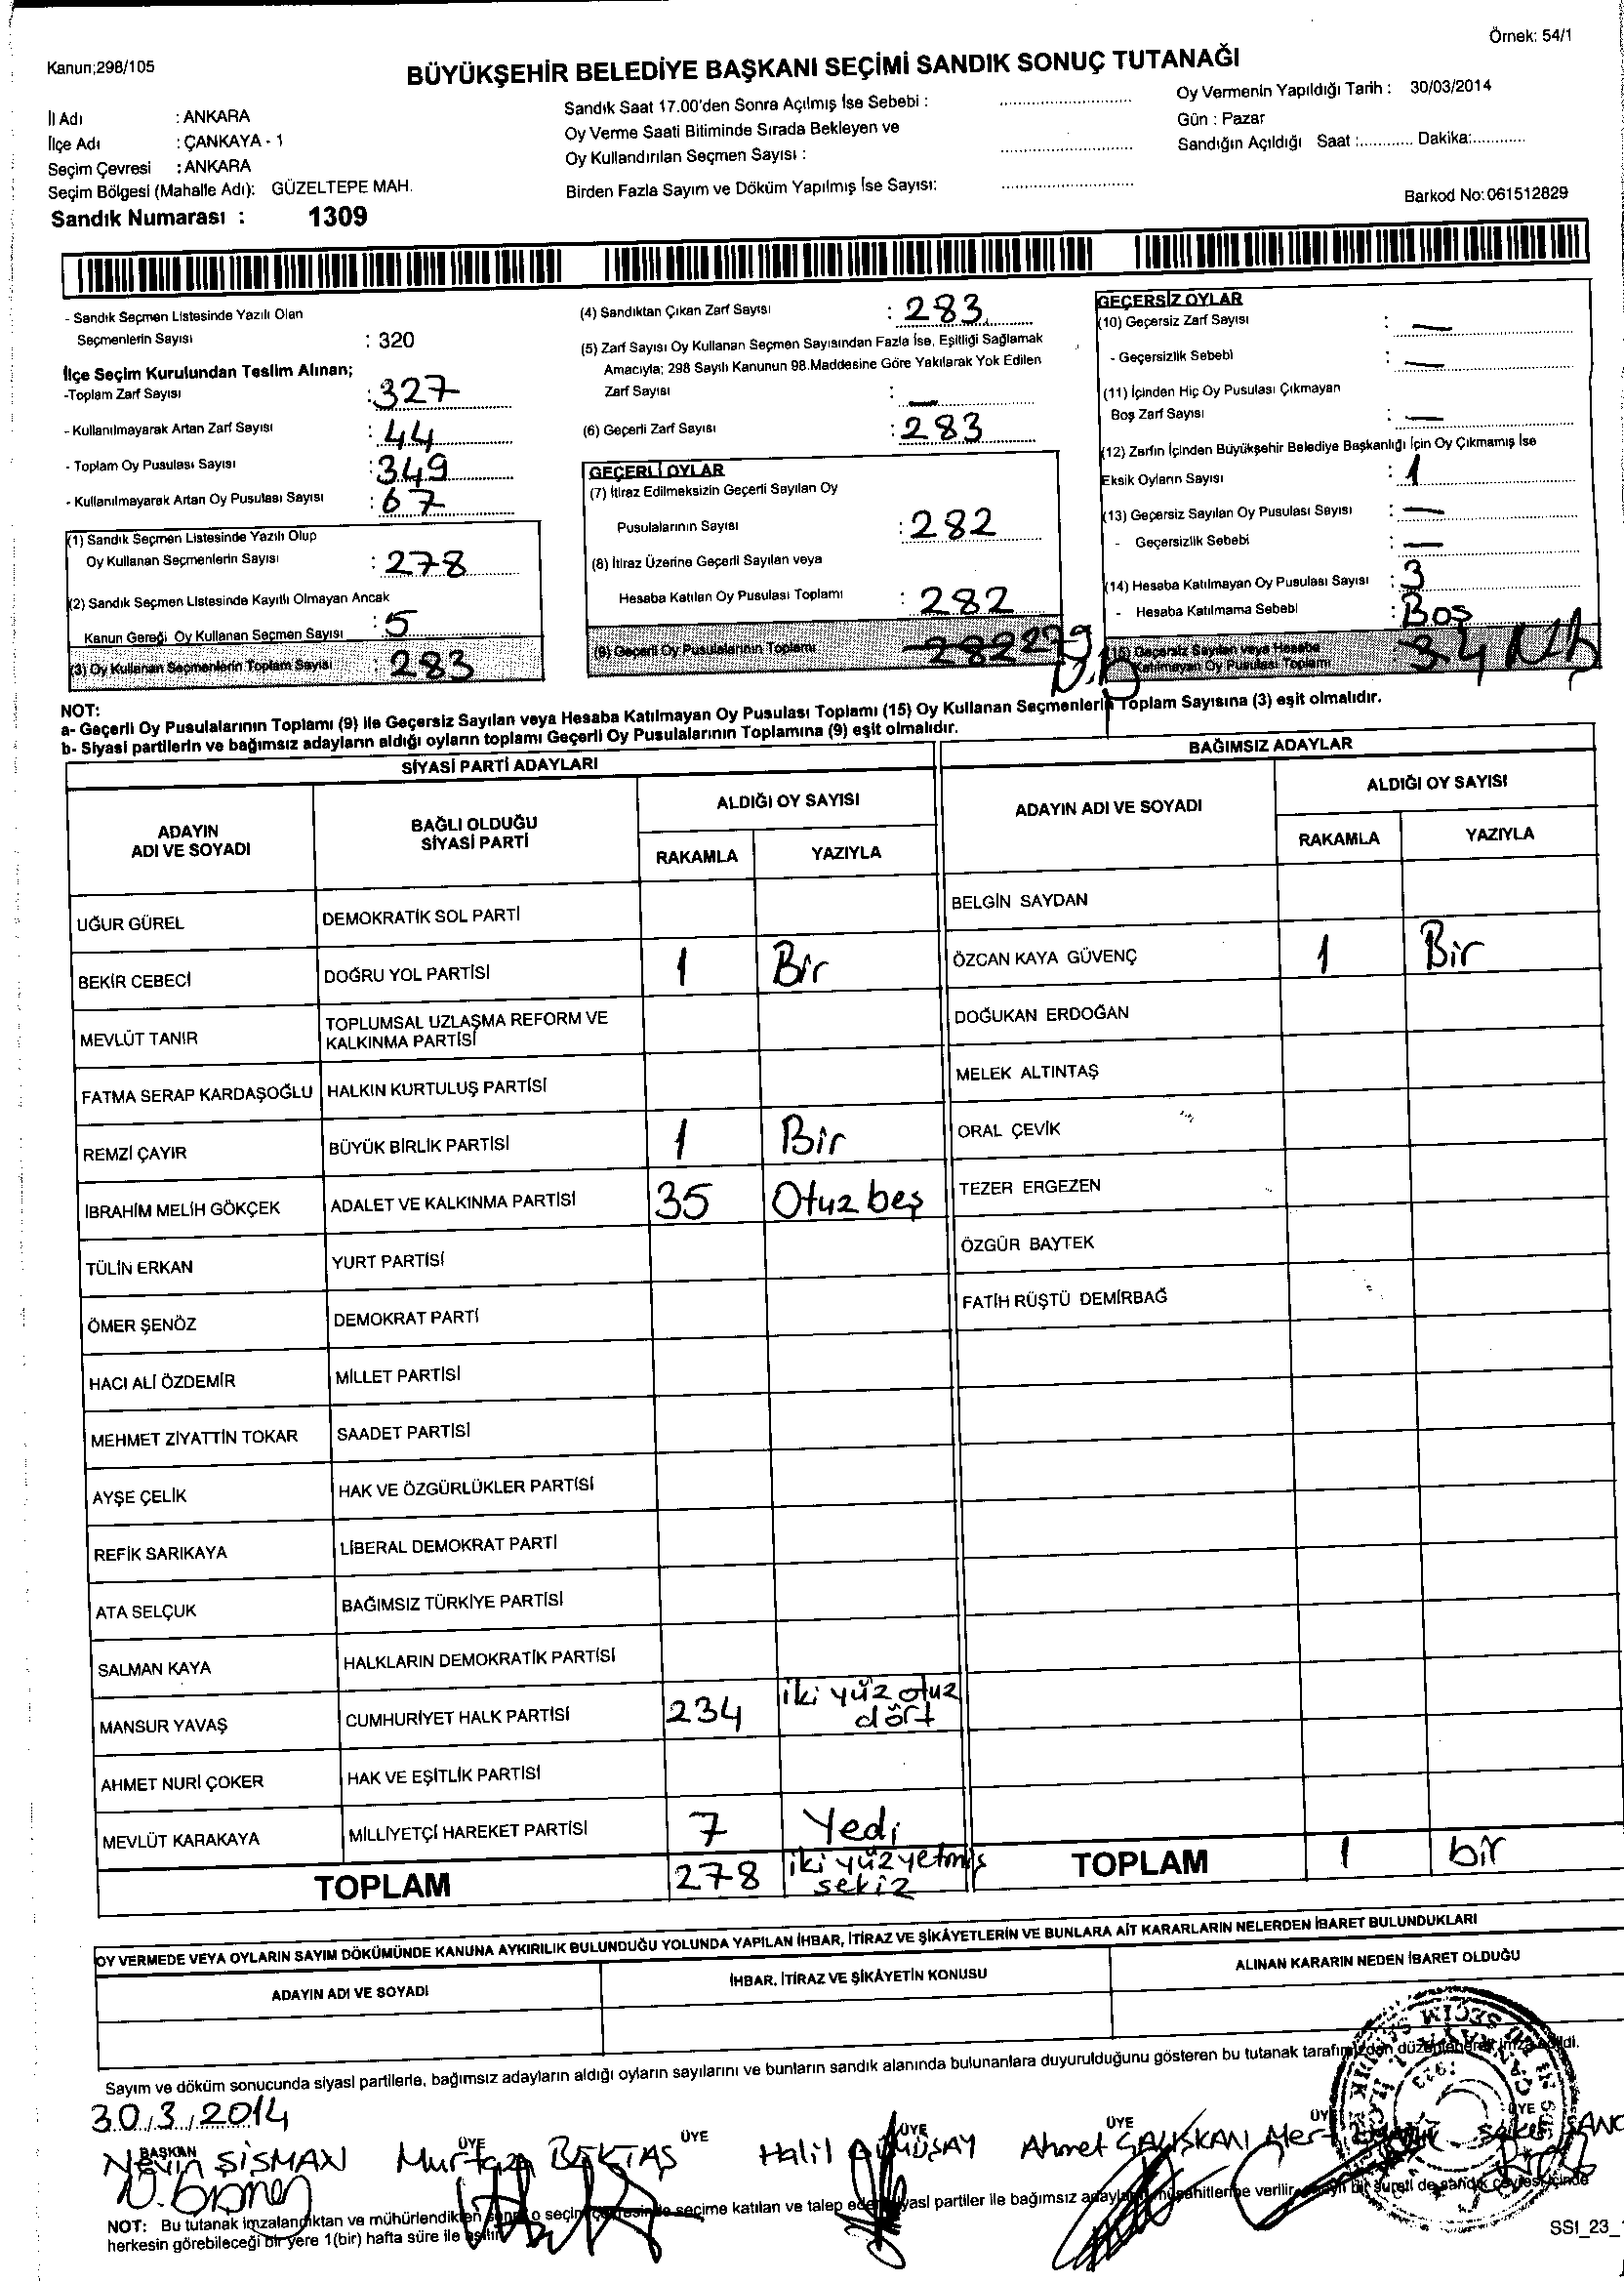 Örnek: 54/1
Kanun;298/105
BÜYÜKŞEHİR BELEDİYE BAŞKANI SEÇİMİ SANDIK SONUÇ TUTANAĞI
İl Adı : ANKARA
İlçe Adı : ÇANKAYA - 1
Seçim Çevresi : ANKARA
Seçim Bölgesi (Mahalle Adı): GÜZELTEPE MAH.
Sandık Numarası : 1309
Sandık Saat 17.00'den Sonra Açılmış İse Sebebi :
Oy Verme Saati Bitiminde Sırada Bekleyen ve
Oy Kullandırılan Seçmen Sayısı :
Birden Fazla Sayım ve Döküm Yapılmış İse Sayısı:
Oy Vermenin Yapıldığı Tarih : 30/03/2014
Gün : Pazar
Sandığın Açıldığı Saat :............ Dakika:............
Barkod No:061512829
- Sandık Seçmen Listesinde Yazılı Olan
Seçmenlerin Sayısı : 320
İlçe Seçim Kurulundan Teslim Alınan;
-Toplam Zarf Sayısı : 327
- Kullanılmayarak Artan Zarf Sayısı : 44
- Toplam Oy Pusulası Sayısı : 349
- Kullanılmayarak Artan Oy Pusulası Sayısı : 67
(1) Sandık Seçmen Listesinde Yazılı Olup
Oy Kullanan Seçmenlerin Sayısı : 278
(2) Sandık Seçmen Listesinde Kayıtlı Olmayan Ancak
Kanun Gereği Oy Kullanan Seçmen Sayısı : 5
(3) Oy Kullanan Seçmenlerin Toplam Sayısı : 283
(4) Sandıktan Çıkan Zarf Sayısı : 283
(5) Zarf Sayısı Oy Kullanan Seçmen Sayısından Fazla İse, Eşitliği Sağlamak
Amacıyla; 298 Sayılı Kanunun 98.Maddesine Göre Yakılarak Yok Edilen
Zarf Sayısı : —
(6) Geçerli Zarf Sayısı : 283
GEÇERLİ OYLAR
(7) İtiraz Edilmeksizin Geçerli Sayılan Oy
Pusulalarının Sayısı : 282
(8) İtiraz Üzerine Geçerli Sayılan veya
Hesaba Katılan Oy Pusulası Toplamı : 282
(9) Geçerli Oy Pusulalarının Toplamı 282 279
GEÇERSİZ OYLAR
(10) Geçersiz Zarf Sayısı : —
- Geçersizlik Sebebi : —
(11) İçinden Hiç Oy Pusulası Çıkmayan
Boş Zarf Sayısı : —
(12) Zarfın İçinden Büyükşehir Belediye Başkanlığı İçin Oy Çıkmamış İse
Eksik Oyların Sayısı : 1
(13) Geçersiz Sayılan Oy Pusulası Sayısı : —
- Geçersizlik Sebebi : —
(14) Hesaba Katılmayan Oy Pusulası Sayısı : 3
- Hesaba Katılmama Sebebi : Boş
(15) Geçersiz Sayılan veya Hesaba
Katılmayan Oy Pusulası Toplamı : 3 4
NOT:
a- Geçerli Oy Pusulalarının Toplamı (9) ile Geçersiz Sayılan veya Hesaba Katılmayan Oy Pusulası Toplamı (15) Oy Kullanan Seçmenlerin Toplam Sayısına (3) eşit olmalıdır.
b- Siyasi partilerin ve bağımsız adayların aldığı oyların toplamı Geçerli Oy Pusulalarının Toplamına (9) eşit olmalıdır.
SİYASİ PARTİ ADAYLARI
ADAYIN ADI VE SOYADI
BAĞLI OLDUĞU SİYASİ PARTİ
ALDIĞI OY SAYISI
RAKAMLA YAZIYLA
UĞUR GÜREL DEMOKRATİK SOL PARTİ
BEKİR CEBECİ DOĞRU YOL PARTİSİ 1 Bir
MEVLÜT TANIR TOPLUMSAL UZLAŞMA REFORM VE
KALKINMA PARTİSİ
FATMA SERAP KARDAŞOĞLU HALKIN KURTULUŞ PARTİSİ
REMZİ ÇAYIR BÜYÜK BİRLİK PARTİSİ 1 Bir
İBRAHİM MELİH GÖKÇEK ADALET VE KALKINMA PARTİSİ 35 Otuz beş
TÜLİN ERKAN YURT PARTİSİ
ÖMER ŞENÖZ DEMOKRAT PARTİ
HACI ALİ ÖZDEMİR MİLLET PARTİSİ
MEHMET ZİYATTİN TOKAR SAADET PARTİSİ
AYŞE ÇELİK HAK VE ÖZGÜRLÜKLER PARTİSİ
REFİK SARIKAYA LİBERAL DEMOKRAT PARTİ
ATA SELÇUK BAĞIMSIZ TÜRKİYE PARTİSİ
SALMAN KAYA HALKLARIN DEMOKRATİK PARTİSİ
MANSUR YAVAŞ CUMHURİYET HALK PARTİSİ 234 iki yüz otuz
dört
AHMET NURİ ÇOKER HAK VE EŞİTLİK PARTİSİ
MEVLÜT KARAKAYA MİLLİYETÇİ HAREKET PARTİSİ 7 Yedi
TOPLAM 278 iki yüz yetmiş
sekiz
BAĞIMSIZ ADAYLAR
ADAYIN ADI VE SOYADI
ALDIĞI OY SAYISI
RAKAMLA YAZIYLA
BELGİN SAYDAN
ÖZCAN KAYA GÜVENÇ 1 Bir
DOĞUKAN ERDOĞAN
MELEK ALTINTAŞ
ORAL ÇEVİK
TEZER ERGEZEN
ÖZGÜR BAYTEK
FATİH RÜŞTÜ DEMİRBAĞ
TOPLAM 1 bir
OY VERMEDE VEYA OYLARIN SAYIM DÖKÜMÜNDE KANUNA AYKIRILIK BULUNDUĞU YOLUNDA YAPILAN İHBAR, İTİRAZ VE ŞİKÂYETLERİN VE BUNLARA AİT KARARLARIN NELERDEN İBARET BULUNDUKLARI
ADAYIN ADI VE SOYADI İHBAR, İTİRAZ VE ŞİKÂYETİN KONUSU ALINAN KARARIN NEDEN İBARET OLDUĞU
Sayım ve döküm sonucunda siyasi partilerle, bağımsız adayların aldığı oyların sayılarını ve bunların sandık alanında bulunanlara duyurulduğunu gösteren bu tutanak tarafımızdan düzenlenerek imza edildi.
30.3.2014
BAŞKAN ÜYE ÜYE ÜYE ÜYE ÜYE ÜYE
Nevin ŞİŞMAN Murtaza BEKTAŞ Halil Ahmet ÇALIŞKAN Mert
NOT: Bu tutanak imzalandıktan ve mühürlendikten sonra o seçim çevresinde seçime katılan ve talep eden siyasi partiler ile bağımsız adayların müşahitlerine verilir, aynı bir sureti de sandık çevresi içinde
herkesin görebileceği bir yere 1(bir) hafta süre ile asılır.
SSI_23_